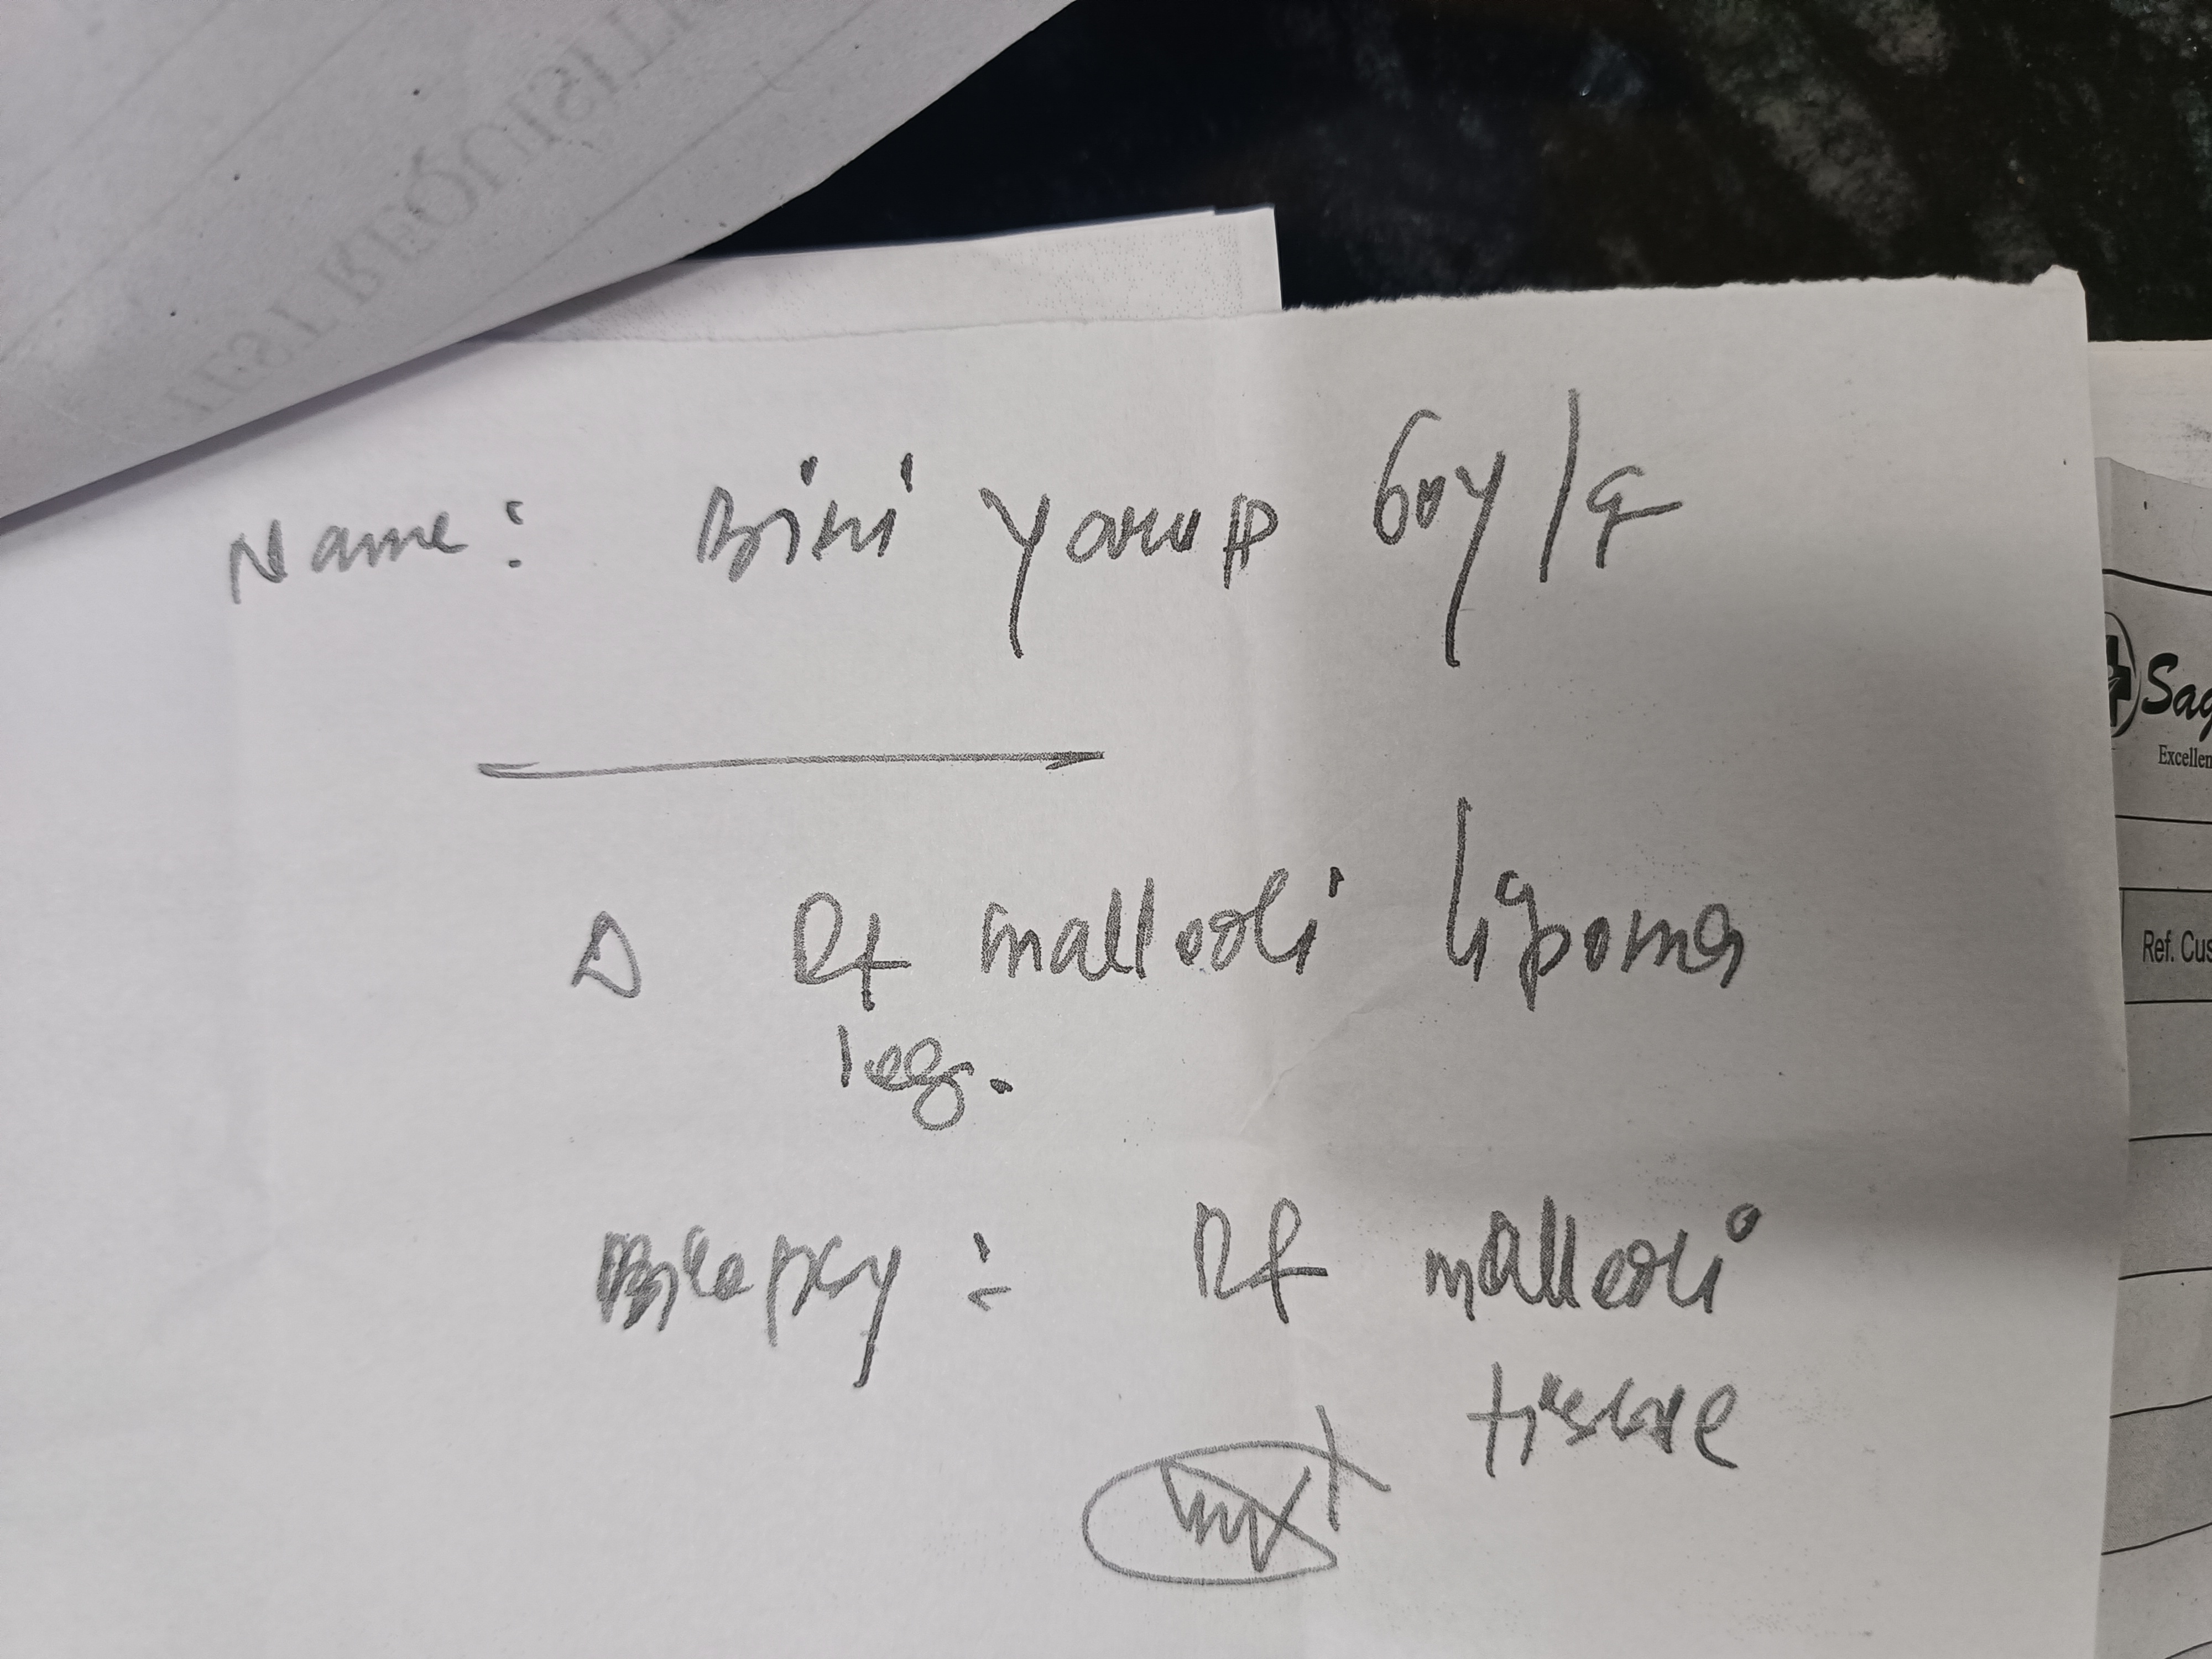 TEST REQUISITI
Name: Bini 60y/F
Δ Rt malleoli lipoma
leg.
Biopsy :- Rt malleoli
tissue
Sag
Excellen
Ref. Cus